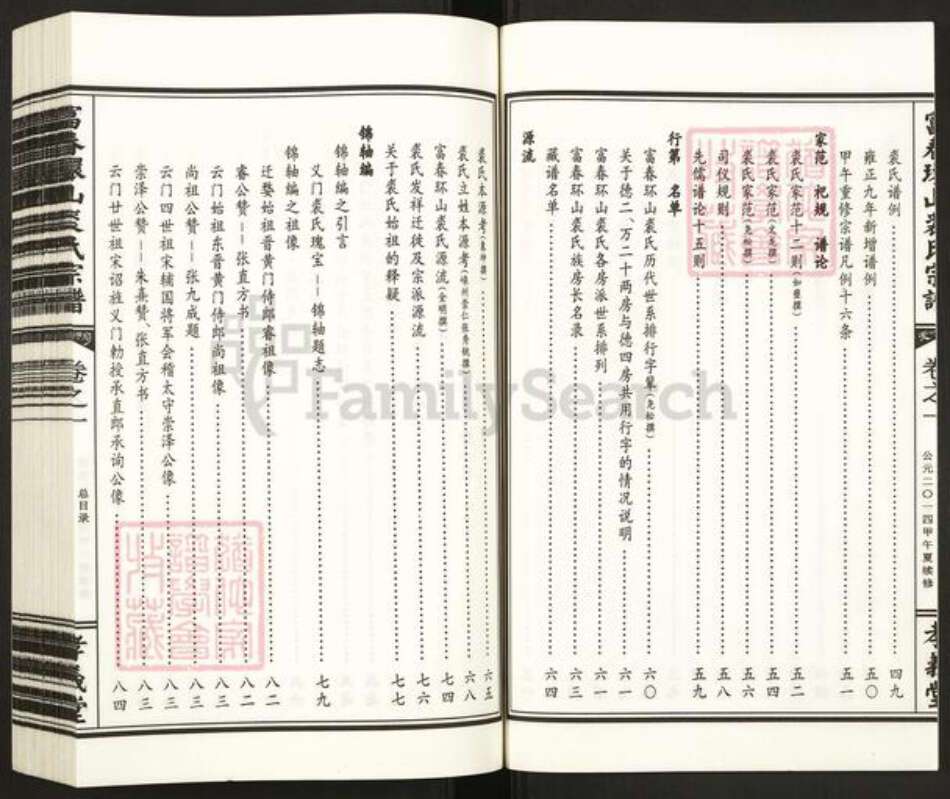 富春环山裘氏宗谱
卷之一
公元二〇一四甲午夏续修
孝义堂
裘氏谱例 四九
雍正九年新增谱例 五〇
甲午重修宗谱凡例十六条 五一
家范 祀规 谱论
裘氏家范十二则 五二
裘氏家范 五四
裘氏家范(尧松撰) 五六
司仪规则 五八
先儒谱论十五则 五九
行第 名单
富春环山裘氏历代世系排行字辈(尧松撰) 六〇
关于德二、万二十两房与德四房共用行字的情况说明 六一
富春环山裘氏各房派世系排列 六一
富春环山裘氏族房长名录 六三
藏谱名单 六四
源流
裘氏本源考 六五
裘氏立姓本源考(嵊州崇仁张秀铫撰) 六八
富春环山裘氏源流(金明撰) 七四
裘氏发祥迁徙及宗派源流 七六
关于裘氏始祖的释疑 七七
锦轴编
锦轴编之引言
义门裘氏瑰宝——锦轴题志 七九
锦轴编之祖像
迁婺始祖晋黄门侍郎睿祖像 八二
睿公赞——张直方书 八二
云门始祖东晋黄门侍郎尚祖像 八三
尚祖公赞——张九成题 八三
云门四世祖宋辅国将军会稽太守崇泽公像 八三
崇泽公赞——朱熹赞、张直方书 八三
云门廿世祖宋诏旌义门勅授承直郎承询公像 八四
富春环山裘氏宗谱
卷之一
总目录
孝义堂
FamilySearch